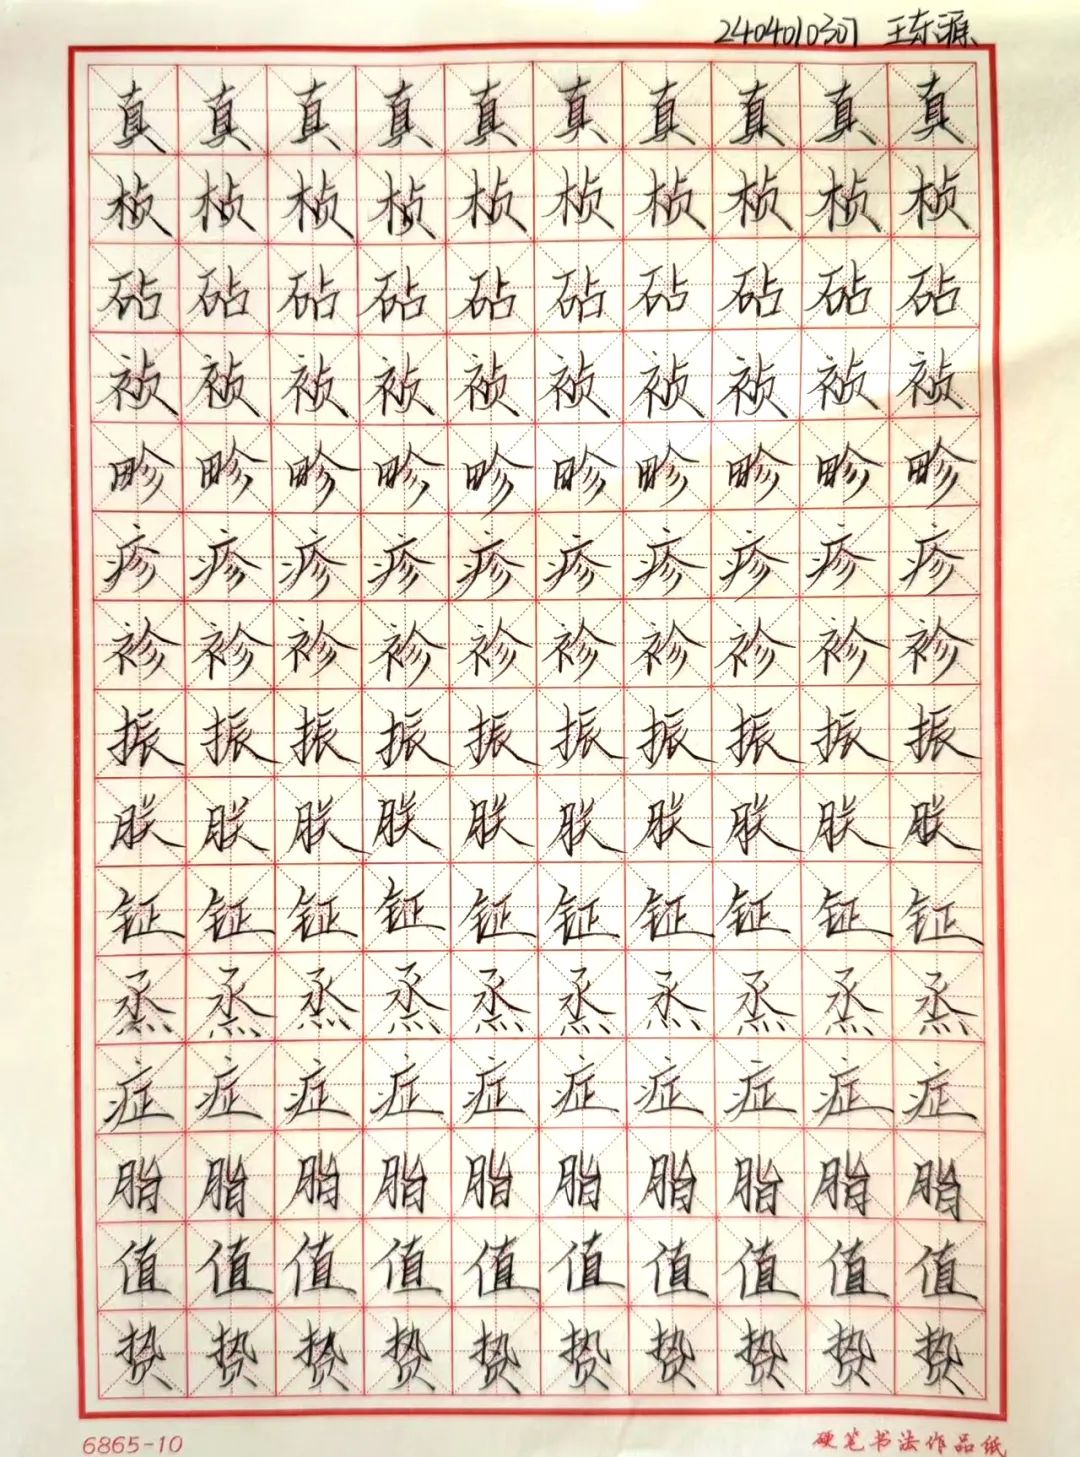 2404010307 王东源
真真真真真真真真真真
桢桢桢桢桢桢桢桢桢桢
砧砧砧砧砧砧砧砧砧砧
祯祯祯祯祯祯祯祯祯祯
畛畛畛畛畛畛畛畛畛畛
疹疹疹疹疹疹疹疹疹疹
袗袗袗袗袗袗袗袗袗袗
振振振振振振振振振振
朕朕朕朕朕朕朕朕朕朕
钲钲钲钲钲钲钲钲钲钲
烝烝烝烝烝烝烝烝烝烝
症症症症症症症症症症
脂脂脂脂脂脂脂脂脂脂
值值值值值值值值值值
贽贽贽贽贽贽贽贽贽贽
6865-10 硬笔书法作品纸